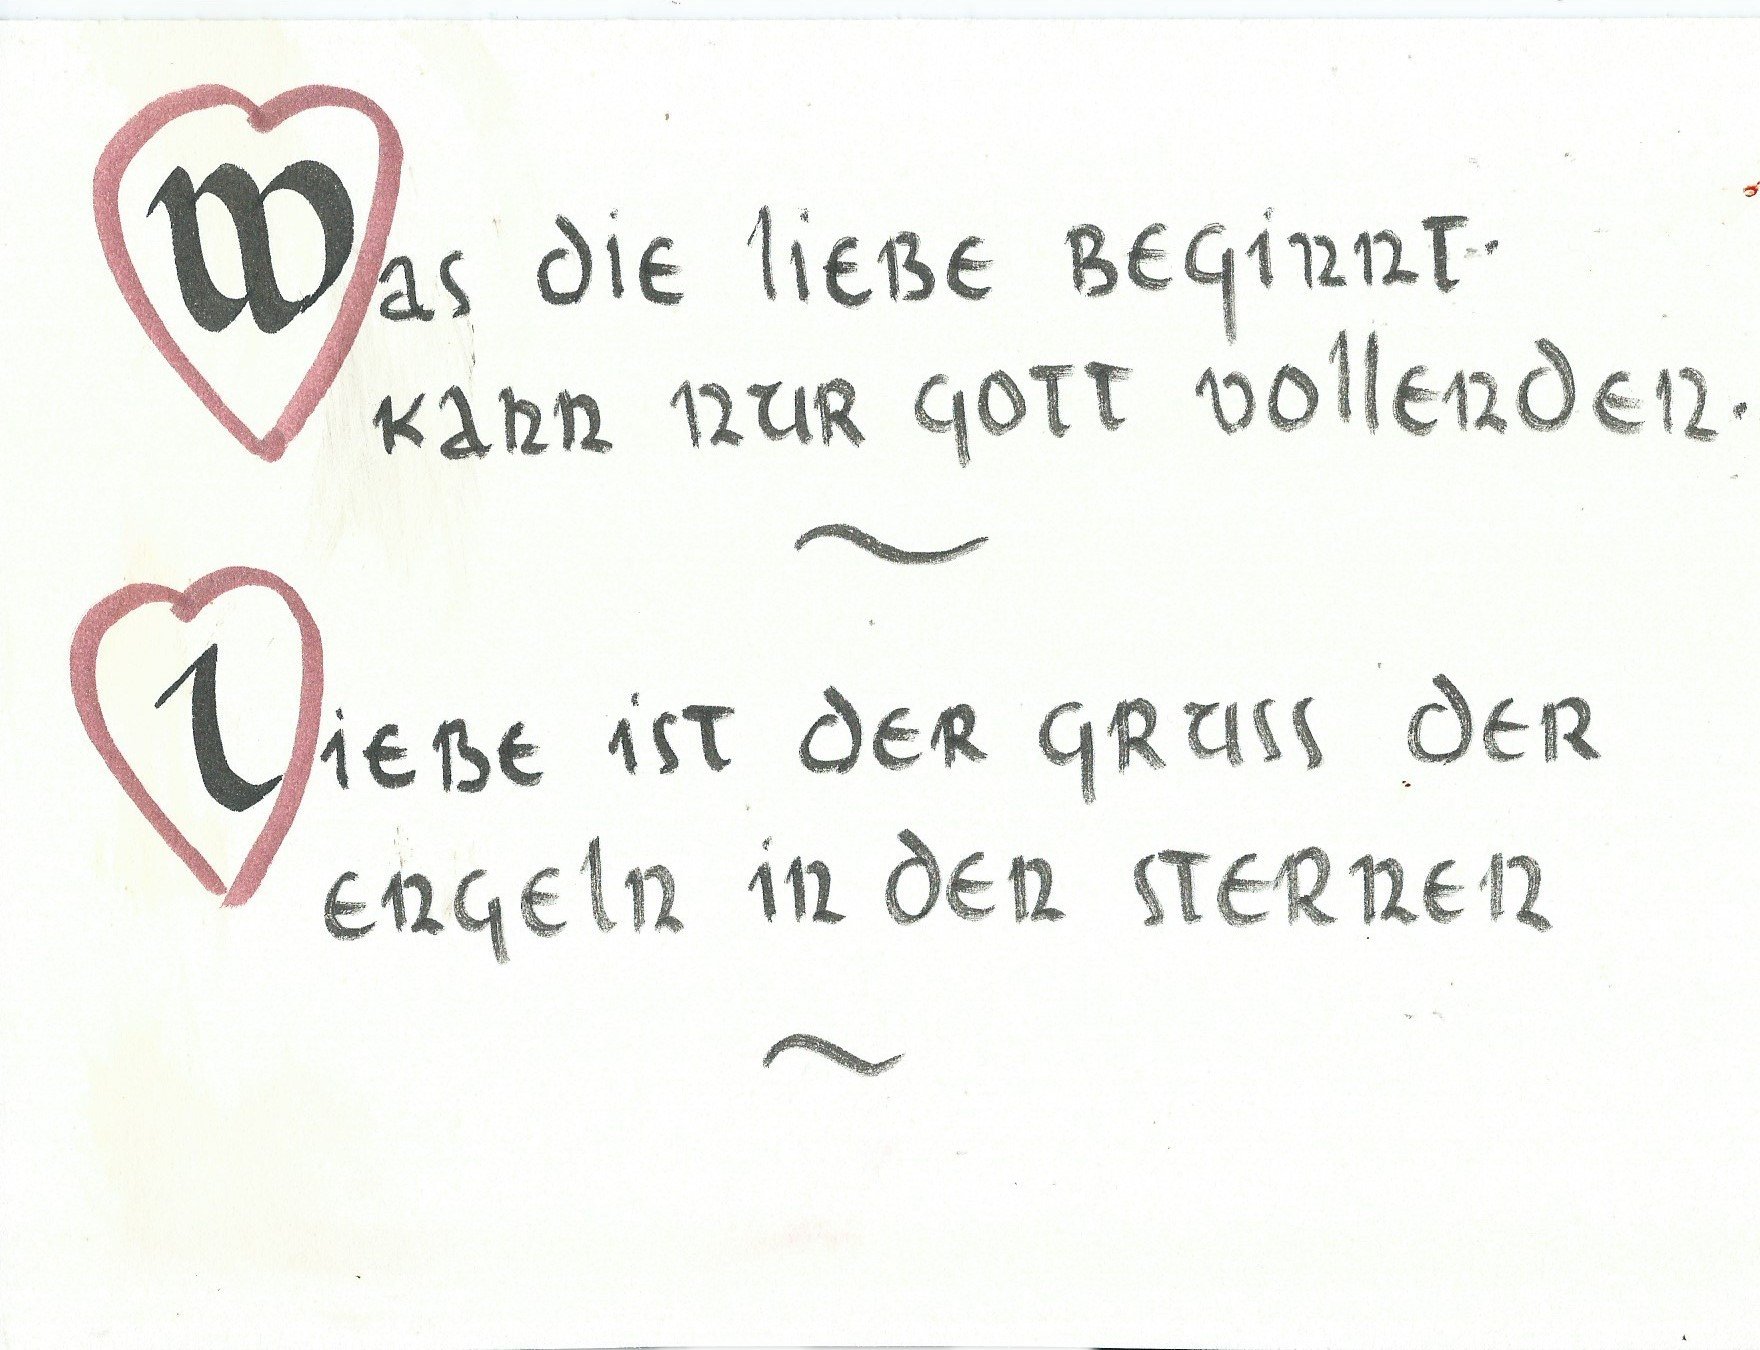 Was die liebe beginnt.
kann nur gott vollenden.
~
liebe ist der gruss der
engeln in den sternen
~